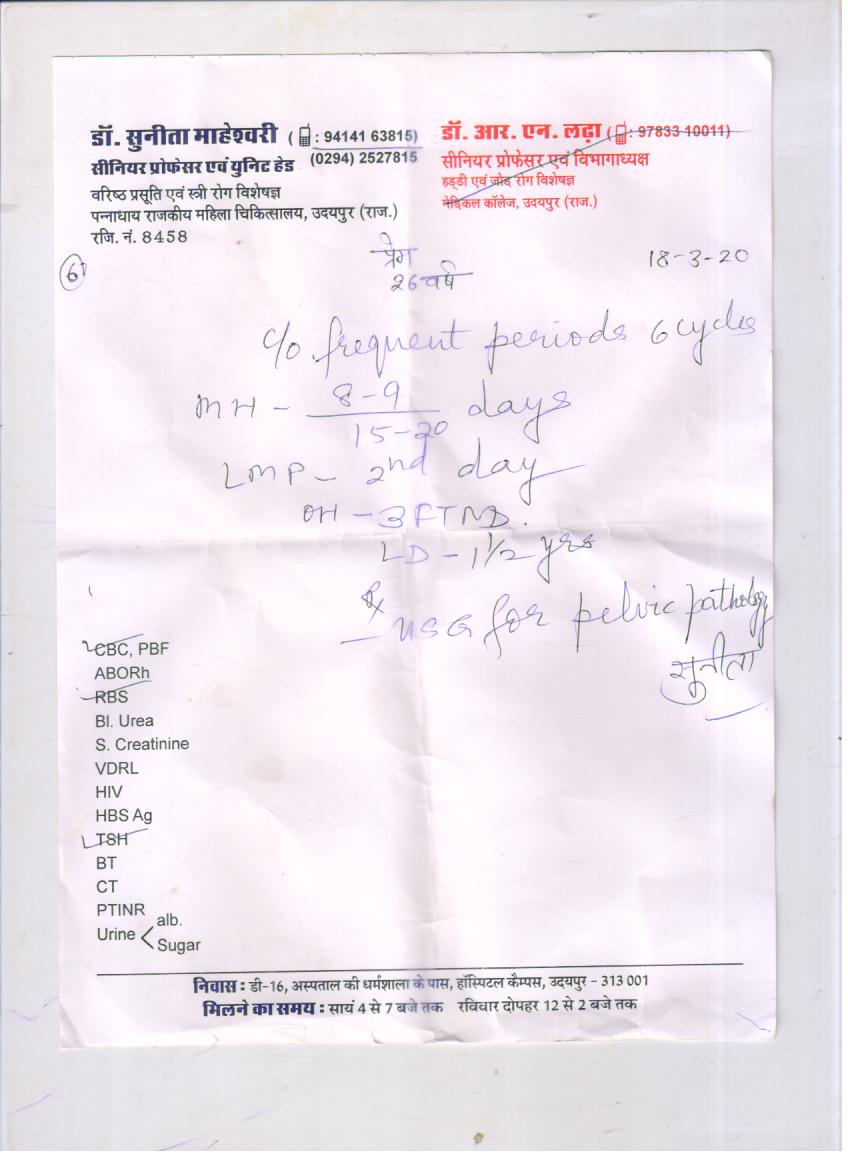 डॉ. सुनीता माहेश्वरी ( : 94141 63815)
(0294) 2527815
सीनियर प्रोफेसर एवं युनिट हेड
वरिष्ठ प्रसूति एवं स्त्री रोग विशेषज्ञ
पन्नाधाय राजकीय महिला चिकित्सालय, उदयपुर (राज.)
रजि. नं. 8458
डॉ. आर. एन. लढ़ा ( : 97833 10011)
सीनियर प्रोफेसर एवं विभागाध्यक्ष
हड्डी एवं जोड़ रोग विशेषज्ञ
मेडिकल कॉलेज, उदयपुर (राज.)
6
प्रेम
18-3-20
26 वर्ष
c/o. frequent periods 6 cycles
MH - 8-9 / 15-20 days
LMP - 2nd day
OH - 3 FTND.
LD - 1 1/2 yrs
Rx
USG for pelvic pathology
सुनीता
CBC, PBF
ABORh
RBS
Bl. Urea
S. Creatinine
VDRL
HIV
HBS Ag
TSH
BT
CT
PTINR
Urine < alb.
Sugar
निवास : डी-16, अस्पताल की धर्मशाला के पास, हॉस्पिटल कैम्पस, उदयपुर - 313 001
मिलने का समय : सायं 4 से 7 बजे तक रविवार दोपहर 12 से 2 बजे तक